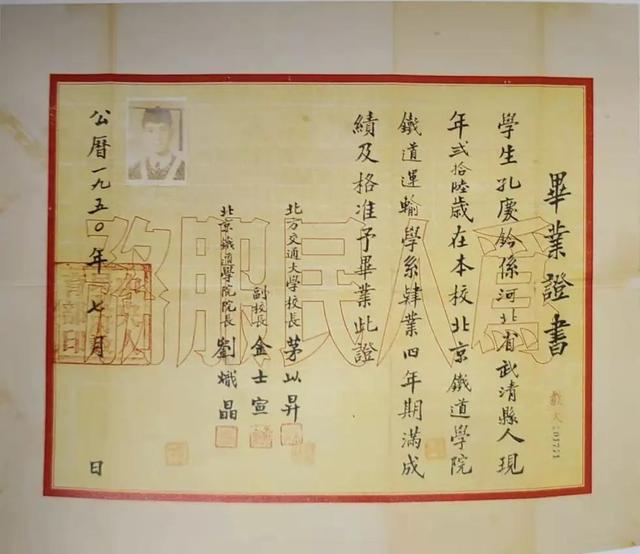 畢業證書
學生孔慶鈐係河北省武清縣人現
年貳拾陸歲在本校北京鐵道學院
鐵道運輸學系肄業四年期滿成
績及格准予畢業此證
北方交通大學校長 茅以昇
副校長 金士宣
北京鐵道學院院長 劉熾晶
公曆一九五〇年七月 日
為人民服務